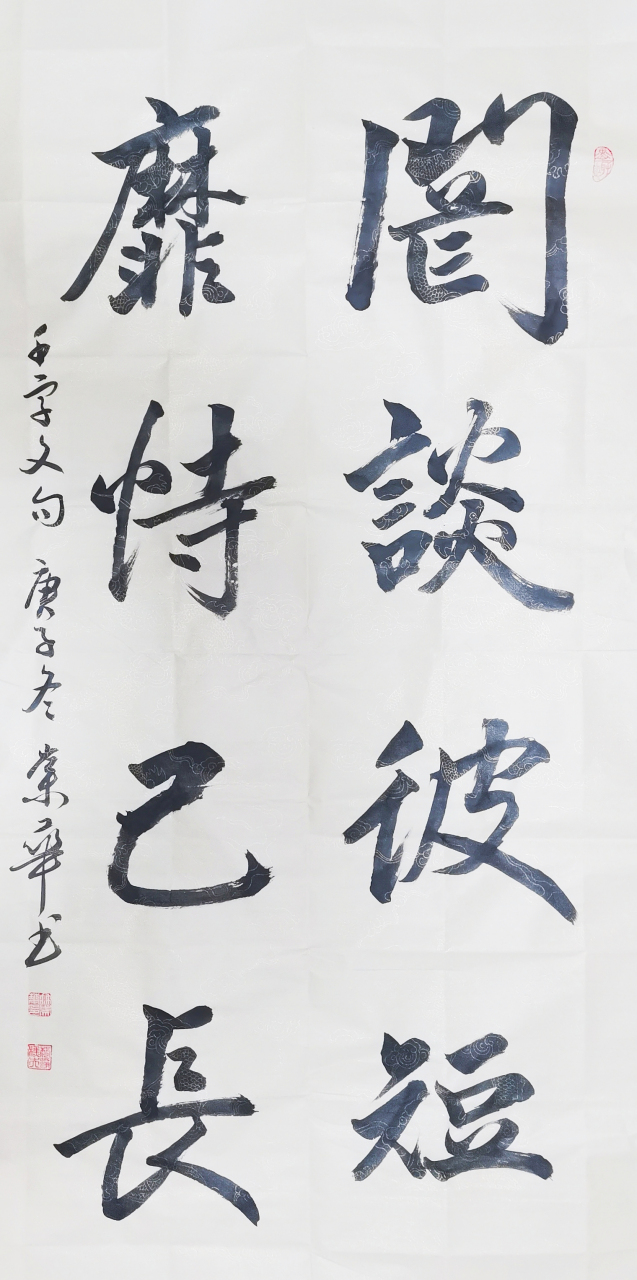 罔談彼短
靡恃己長
千字文句 庚子冬 業華书